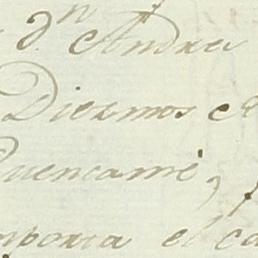 d.n Andres
Diezmos
Cuencamé,
mporta el